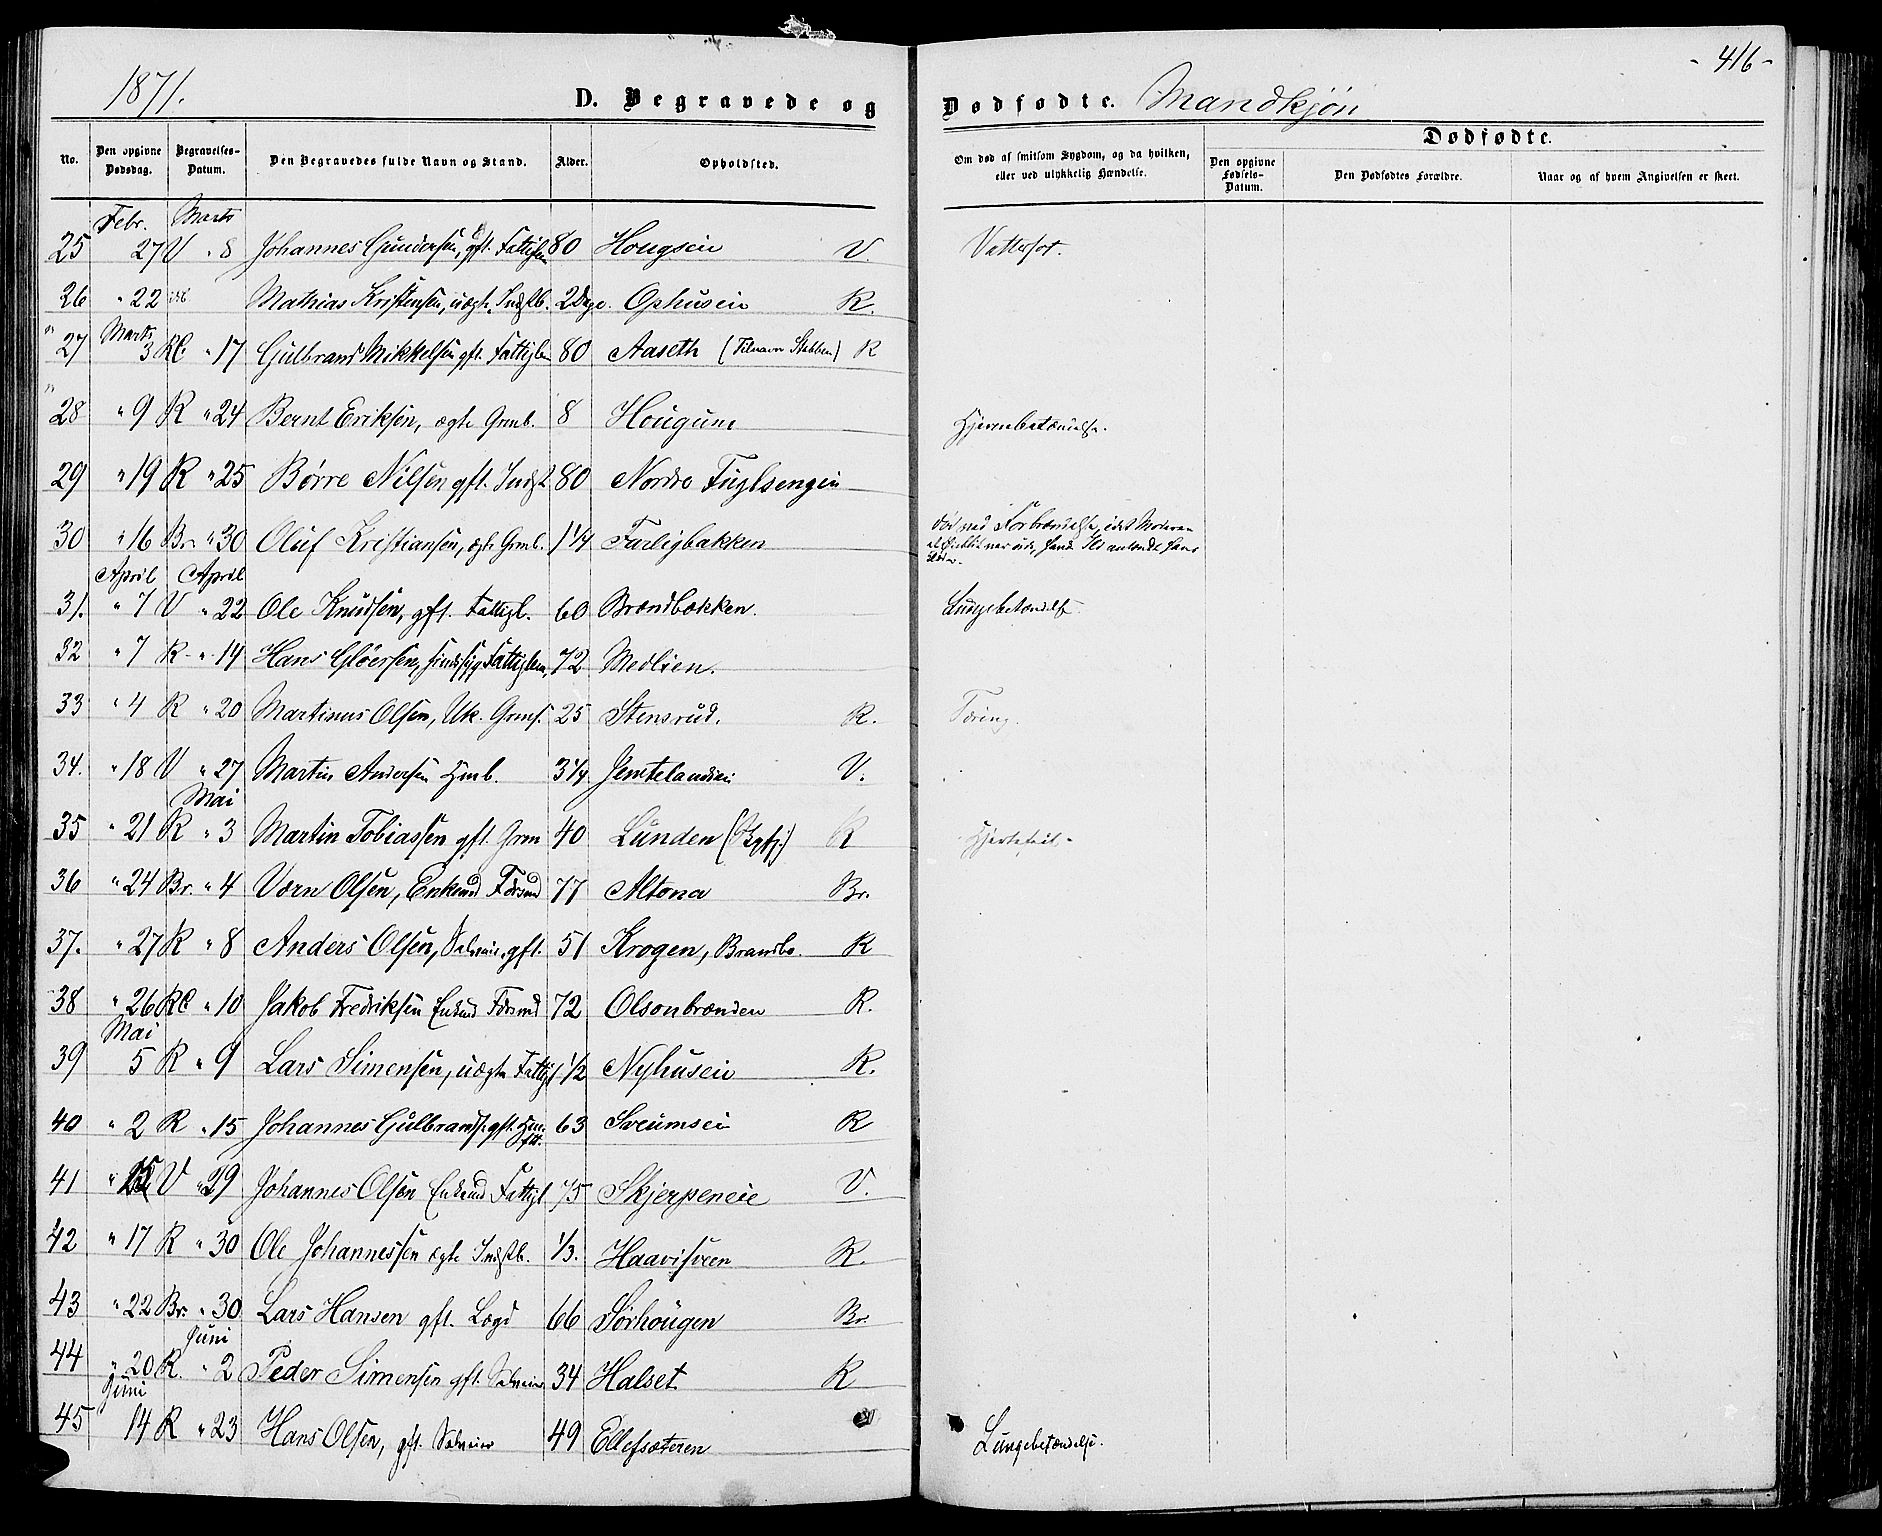 1871.
D. Begravede og
Dødfødte. Mandkjøn
- 416 -
Dødfødte.
No. Den opgivne Dødsdag. Begravelses-Datum. Den Begravedes fulde Navn og Stand. Alder. Opholdsted. Om død af smitsom Sygdom, og da hvilken, eller ved ulykkelig Hændelse. Den opgivne Fødsels-Datum. Den Dødfødtes Forældre. Naar og af hvem Angivelsen er skeet.
Febr. Marts
25 27 V " 8 Johannes Gundersen, gft. Fattiglem 80 Hougseie V. Vattersot.
26 " 22 Mathias Kristensen, uægte Indstb. 2 Dage. Ophuseie R.
Marts
27 3 RC " 17 Gulbrand Mikkelsen gft. Fattiglem 80 Aaseth (Tilnavn Stabben) R
28 " 9 R " 24 Bernt Eriksen, ægte Grmb. 8 Hougum Hjernebetændelse.
29 " 19 R " 25 Børre Nilsen gft. Indst 80 Nordre Fuglsengen
30 " 16 Br " 30 Oluf Kristiansen, ægte Grmb. 1 1/4 Furligbakken død ved Forbrændelse, idet Moderen et Øieblik var ude, hans Klæder.
April April
31. " 7 V " 22 Ole Knudsen, gft. Fattigl. 60 Brændbækken. Lungebetændelse.
32 " 7 R " 14 Hans Gløersen, sindssyg Fattiglem, 72 Medlien.
33 " 4 R " 20 Martinus Olsen, Uk. Grms. 25 Stensrud. R. Tæring.
34. " 18 V " 27 Martin Andersen Hmb. 3 1/4. Jemtelandseie V.
Mai
35 " 21 R " 3 Martin Tobiassen gft. Grm 40 Lunden R Hjertefeil -
36 " 24 Br. " 4 Værn Olsen, Enkemd Fdrsmd 77 Altona Br.
37. " 27 R " 8 Anders Olsen, Selveier, gft. 51 Krogen, Brandbo. R
38 " 26 RC " 10 Jakob Fredriksen Enkmd Fdrsmd 72 Olsonbrænden R.
Mai
39 5 R " 9 Lars Simensen, uægte Fattigl 1/2 Nyhuseie R.
40 " 2 R " 15 Johannes Gulbrands. gft. Hm. ftt. 63 Sveumseie R
41 " 15 V " 29 Johannes Olsen Enkemd Fattigl 75 Skjerpeneie V.
42 " 17 R " 30 Ole Johannessen ægte Indstb. 1/3. Haavisveen R.
43 " 22 Br. " 30 Lars Hansen gft. Lægd 66 Sørhougen Br.
Juni
44 " 20 R. " 2 Peder Simensen gft. Selveier 34 Halset R
Juni
45 14 R " 23 Hans Olsen, gft. Selveier 49 Ellefsæteren Lungebetændelse.